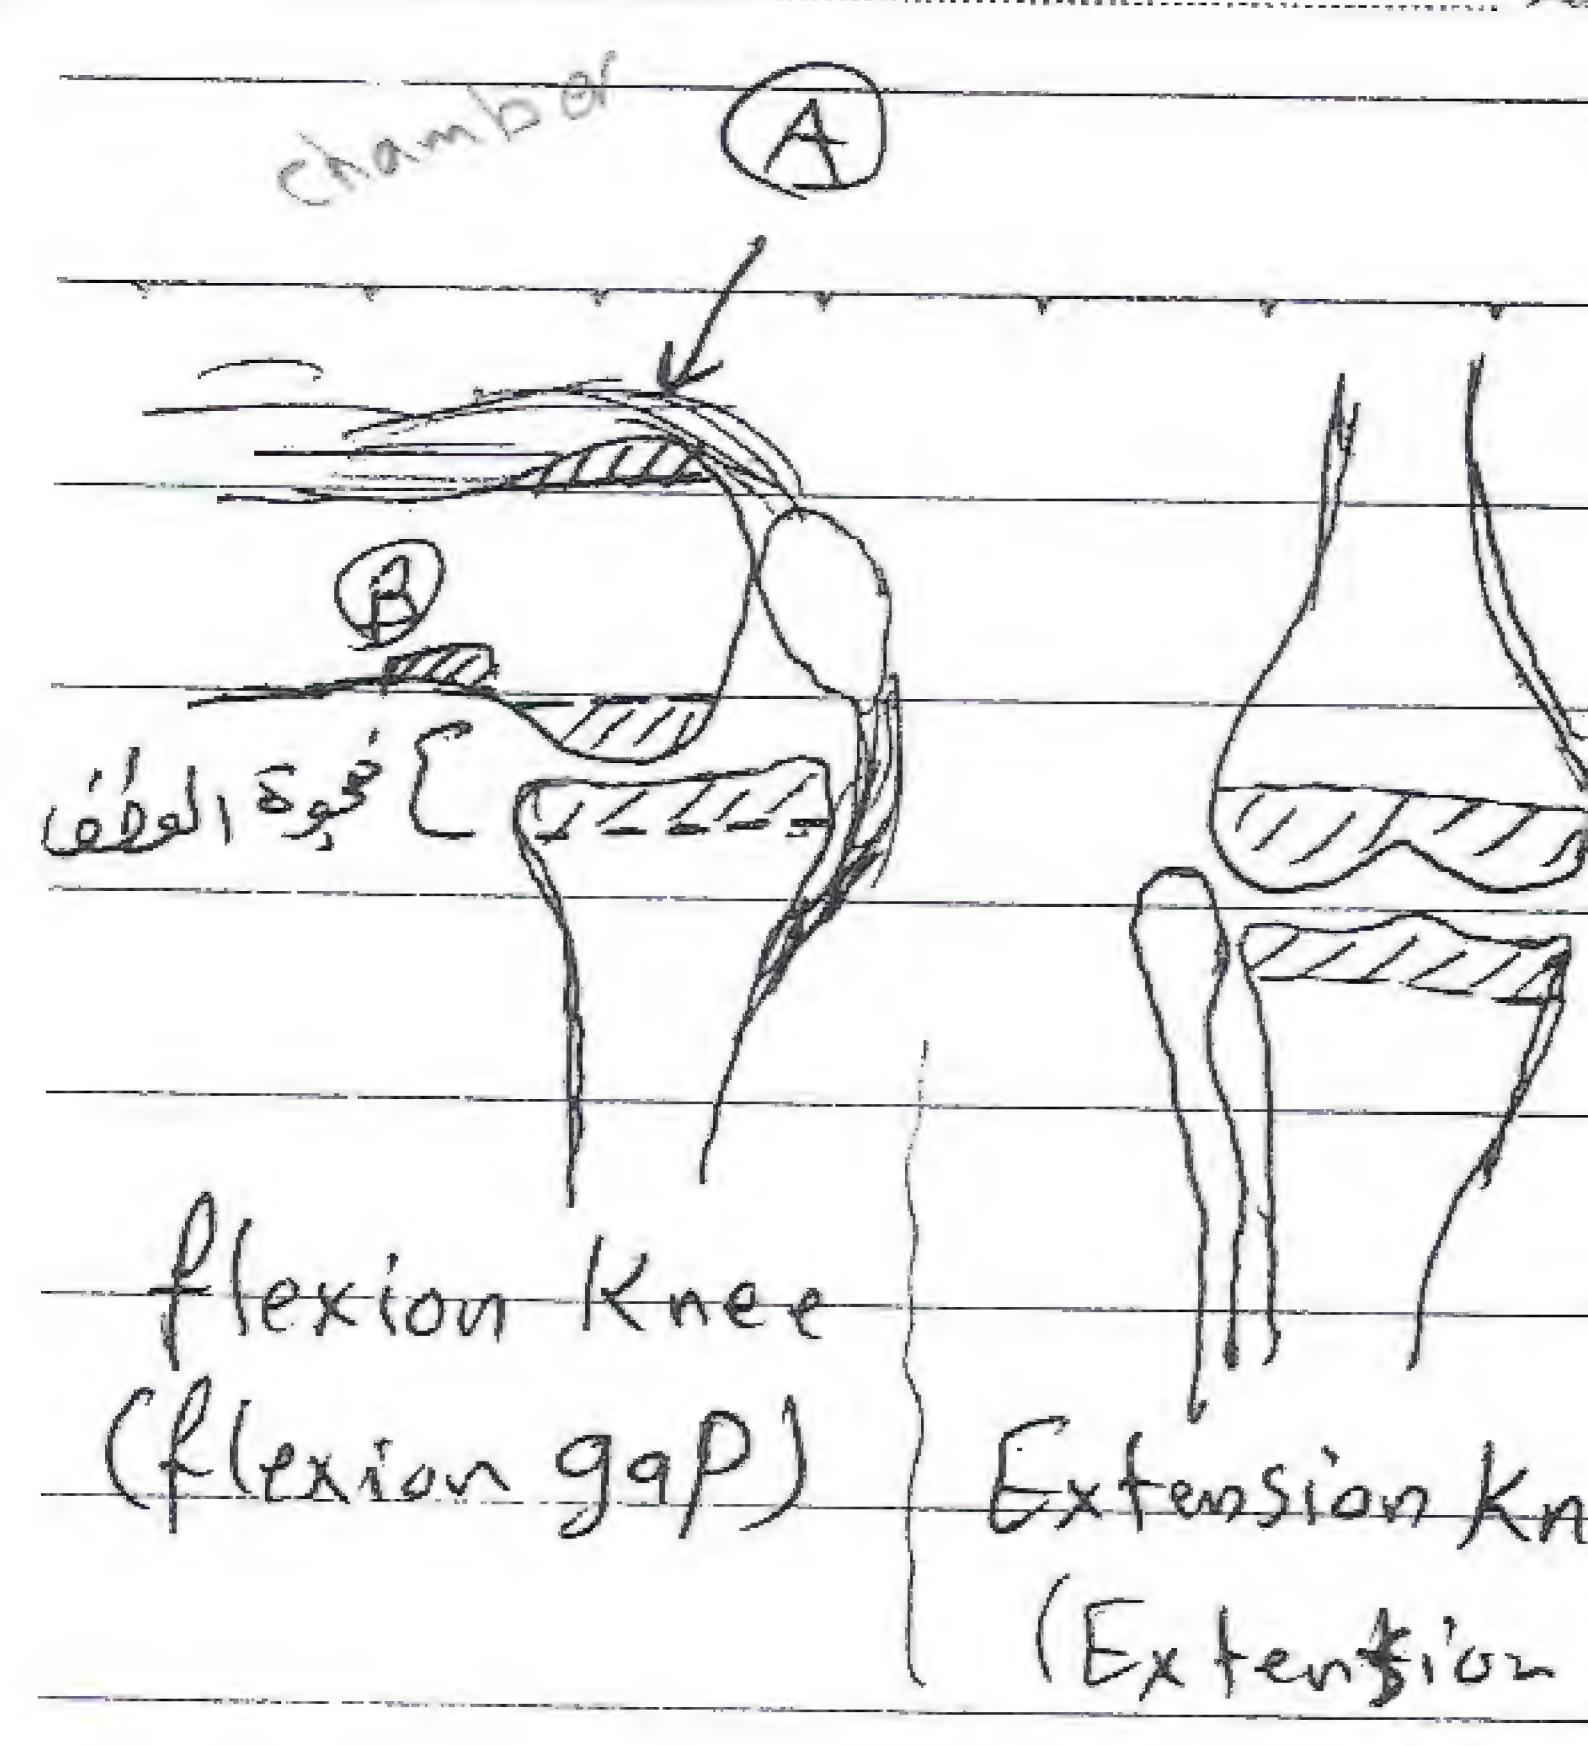 chamber
A
B
فجوة العطف
flexion Knee
(flexion gap)
Extension Kn
(Extension